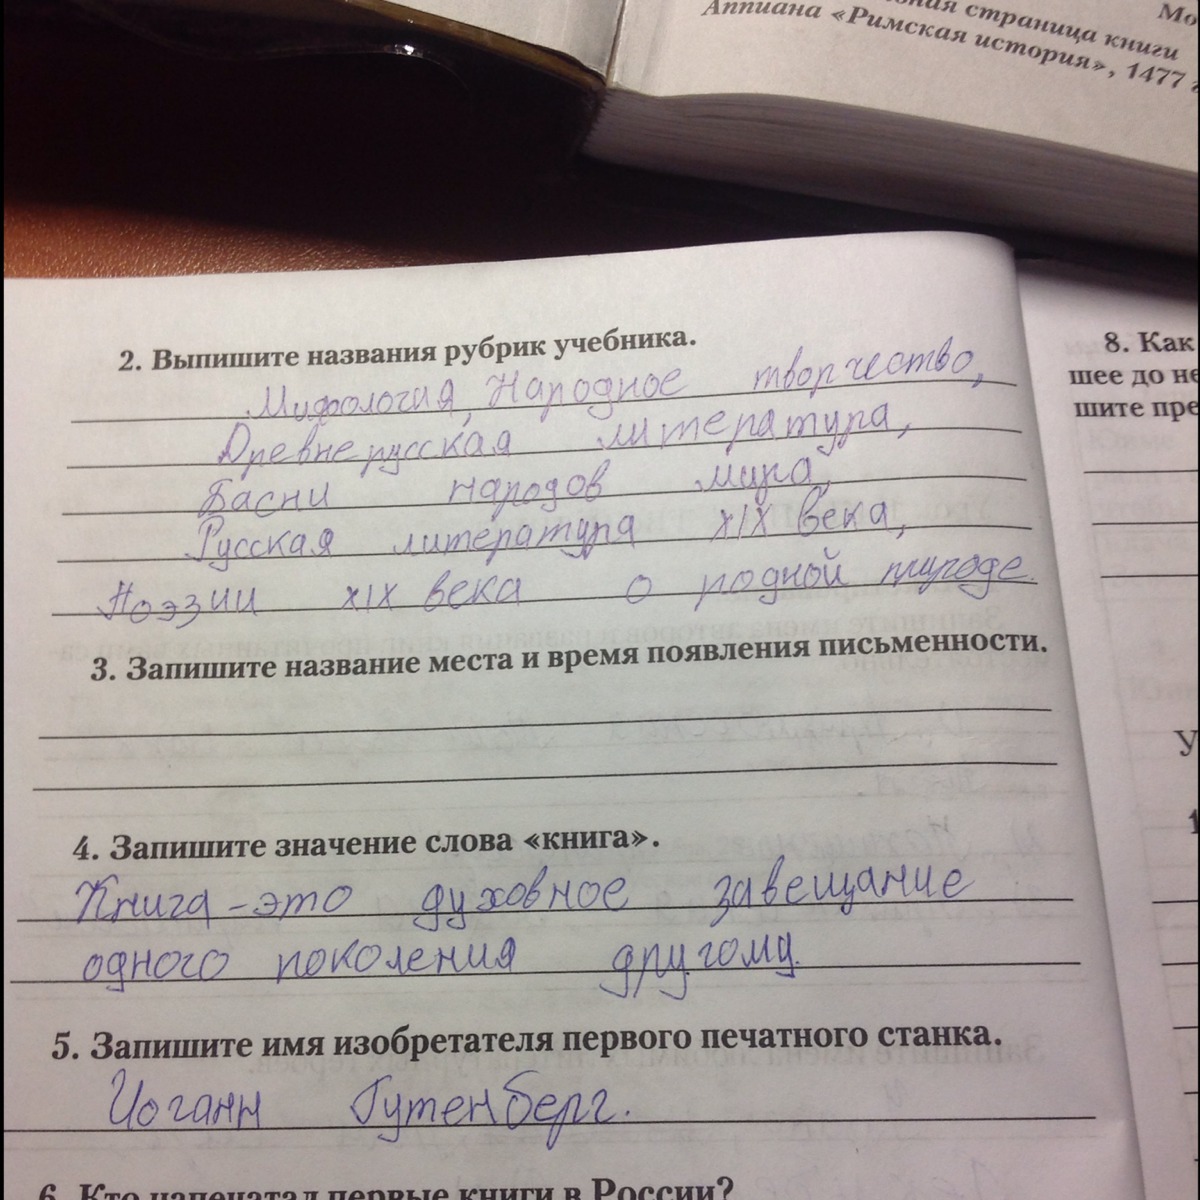 страница книги
Аппиана «Римская история», 1477
2. Выпишите названия рубрик учебника.
Мифология, Народное творчество,
Древнерусская литература,
Басни народов мира,
Русская литература XIX века,
Поэзии XIX века о родной природе.
3. Запишите название места и время появления письменности.
4. Запишите значение слова «книга».
Книга – это духовное завещание
одного поколения другому.
5. Запишите имя изобретателя первого печатного станка.
Иоганн Гутенберг.
6. Кто напечатал первые книги в России?
8. Как
шее до не
шите пре